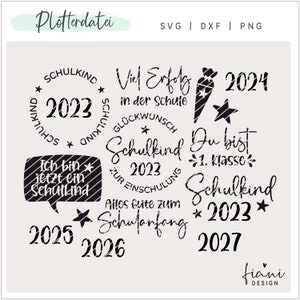 Plotterdatei
SVG | DXF | PNG
SCHULKIND SCHULKIND SCHULKIND
2023
Viel Erfolg
in der Schule
2024
GLÜCKWUNSCH
Schulkind
2023
ZUR EINSCHULUNG
Du bist
1. Klasse
Ich bin
jetzt ein
Schulkind
Schulkind
2023
Alles Gute zum
Schulanfang
2025
2026
2027
fiani
DESIGN